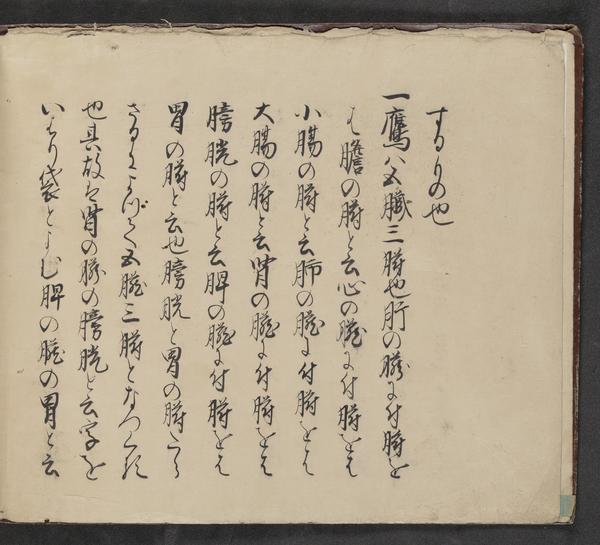 するもの也
一鷹ハ五臓三腑也肝の臓に付腑を
は膽の腑と云心の臓に付腑をは
小腸の腑と云肺の臓に付腑をは
大腸の腑と云腎の臓に付腑をは
膀胱の腑と云脾の臓に付腑をは
胃の腑と云也膀胱と胃の腑たら
さるによつて五臓三腑となつくる
也其故は腎の臓の膀胱と云字を
いはり袋とよむ脾の臓の胃と云